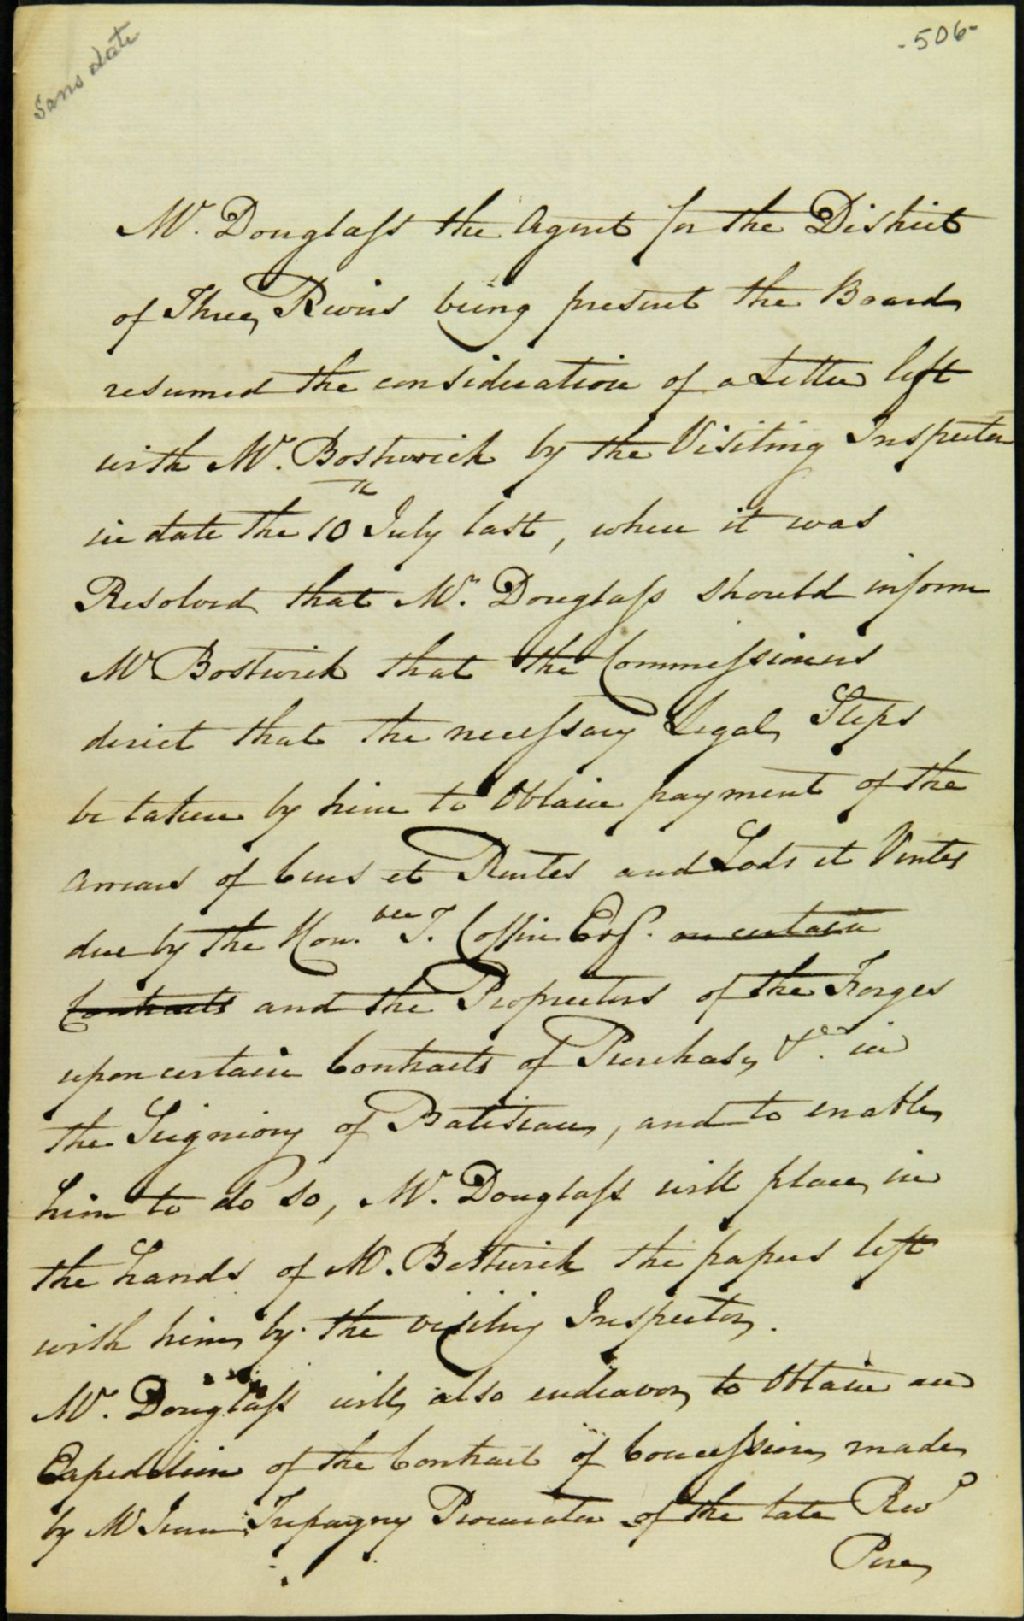 Sans date
-506-
Mr. Douglass the Agent for the District
of Three Rivers being present the Board
resumed the consideration of a Letter left
with Mr. Bostwick by the Visiting Inspector
in date the 10th July last, when it was
Resolved that Mr. Douglass should inform
Mr Bostwick that the Commissioners
direct that the necessary Legal Steps
be taken by him to Obtain payment of the
arrears of Cens et Rentes and Lods et Ventes
due by the Hon.ble T. Coffin Esq. on certain
Contracts and the Proprietors of the Forges
upon certain Contracts of Purchase, &c. in
the Seigniory of Batiscan, and to enable
him to do so, Mr. Douglass will place in
the hands of Mr. Bostwick the papers left
with him by the visiting Inspector.
Mr. Douglass will also endeavor to Obtain an
Expedition of the Contract of Concession made
by Mr Jean Trepagny Procurator of the late Revd
Pere